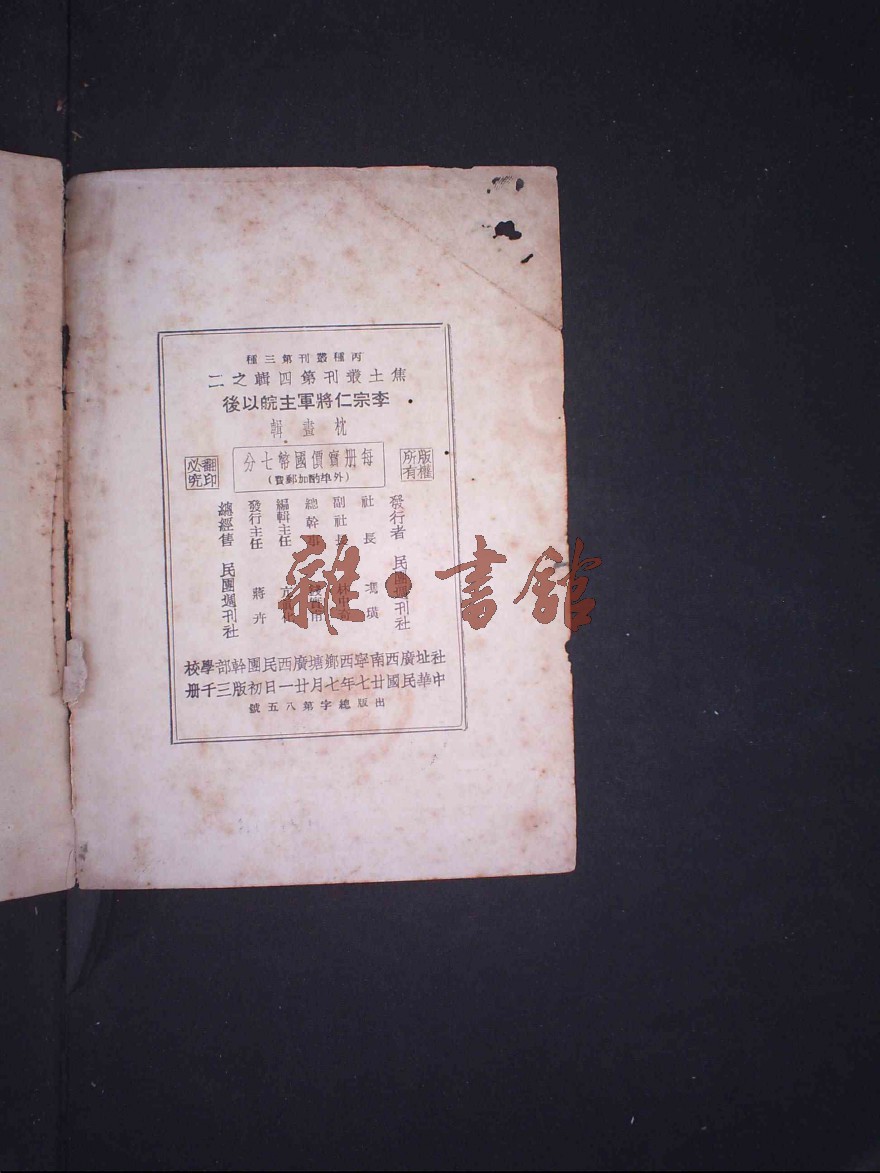 丙種叢刊第三種
焦土叢刊第四輯之二
李宗仁將軍主皖以後
枕畫輯
版權所有
每册實價國幣七分
(外埠酌加郵費)
翻印必究
發行者 民團週刊社
社長 馮璜
副社長
總幹事
編輯主任
發行主任 蔣卉
總經售 民團週刊社
社址廣西南寧西鄉塘廣西民團幹部學校
中華民國廿七年七月廿一日初版三千册
出版總字第八五號
雜·書館